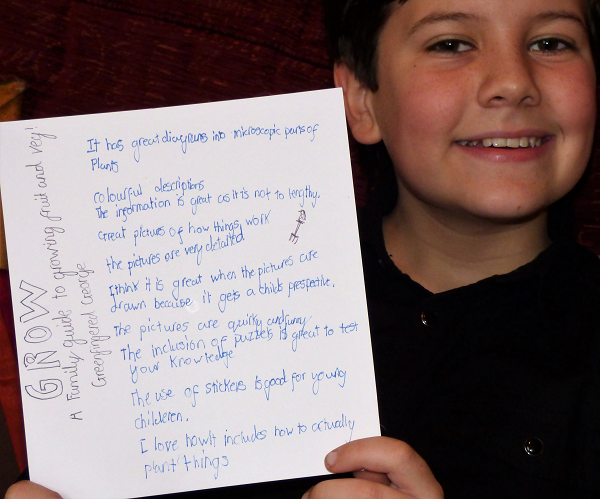 GROW
A Family guide to growing fruit and veg!
Greenfingered George
It has great diagrams into microscopic parts of
Plants
colourful descriptions
The information is great as it is not to lengthy.
Great pictures of how things work
the pictures are very detailed
I think it is great when the pictures are
drawn because it gets a childs prespective.
The pictures are quirky and funny
The inclusion of puzzels is great to test
your knowledge
The use of stickers is good for young
childeren.
I love how It includes how to actually
plant things